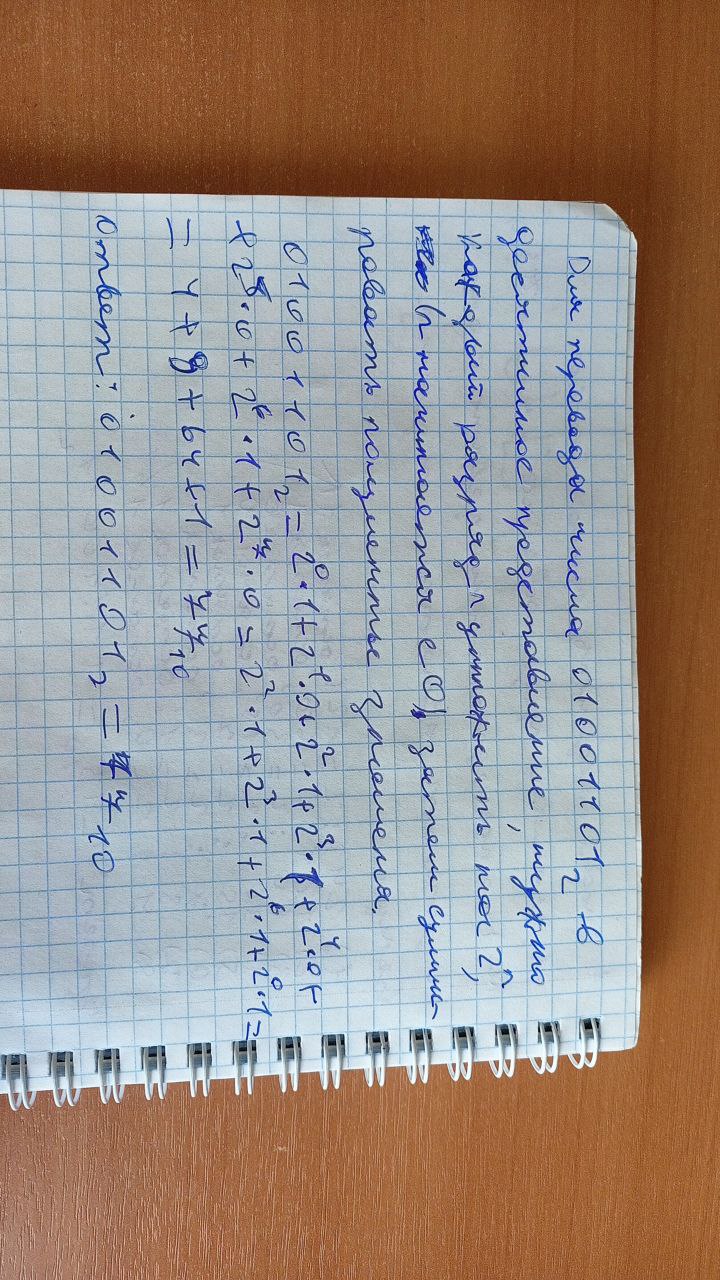 Для перевода числа 01001101₂ в
десятичное представление, нужно
каждый разряд n умножить на 2ⁿ,
(n начинается с 0), затем сумми-
ровать полученные значения.
01001101₂ = 2⁰·1+2¹·0+2²·1+2³·1+2⁴·0+
+2⁵·0+2⁶·1+2⁷·0=2²·1+2³·1+2⁶·1+2⁰·1=
= 4+8+64+1=77₁₀
ответ: 01001101₂ = 77₁₀